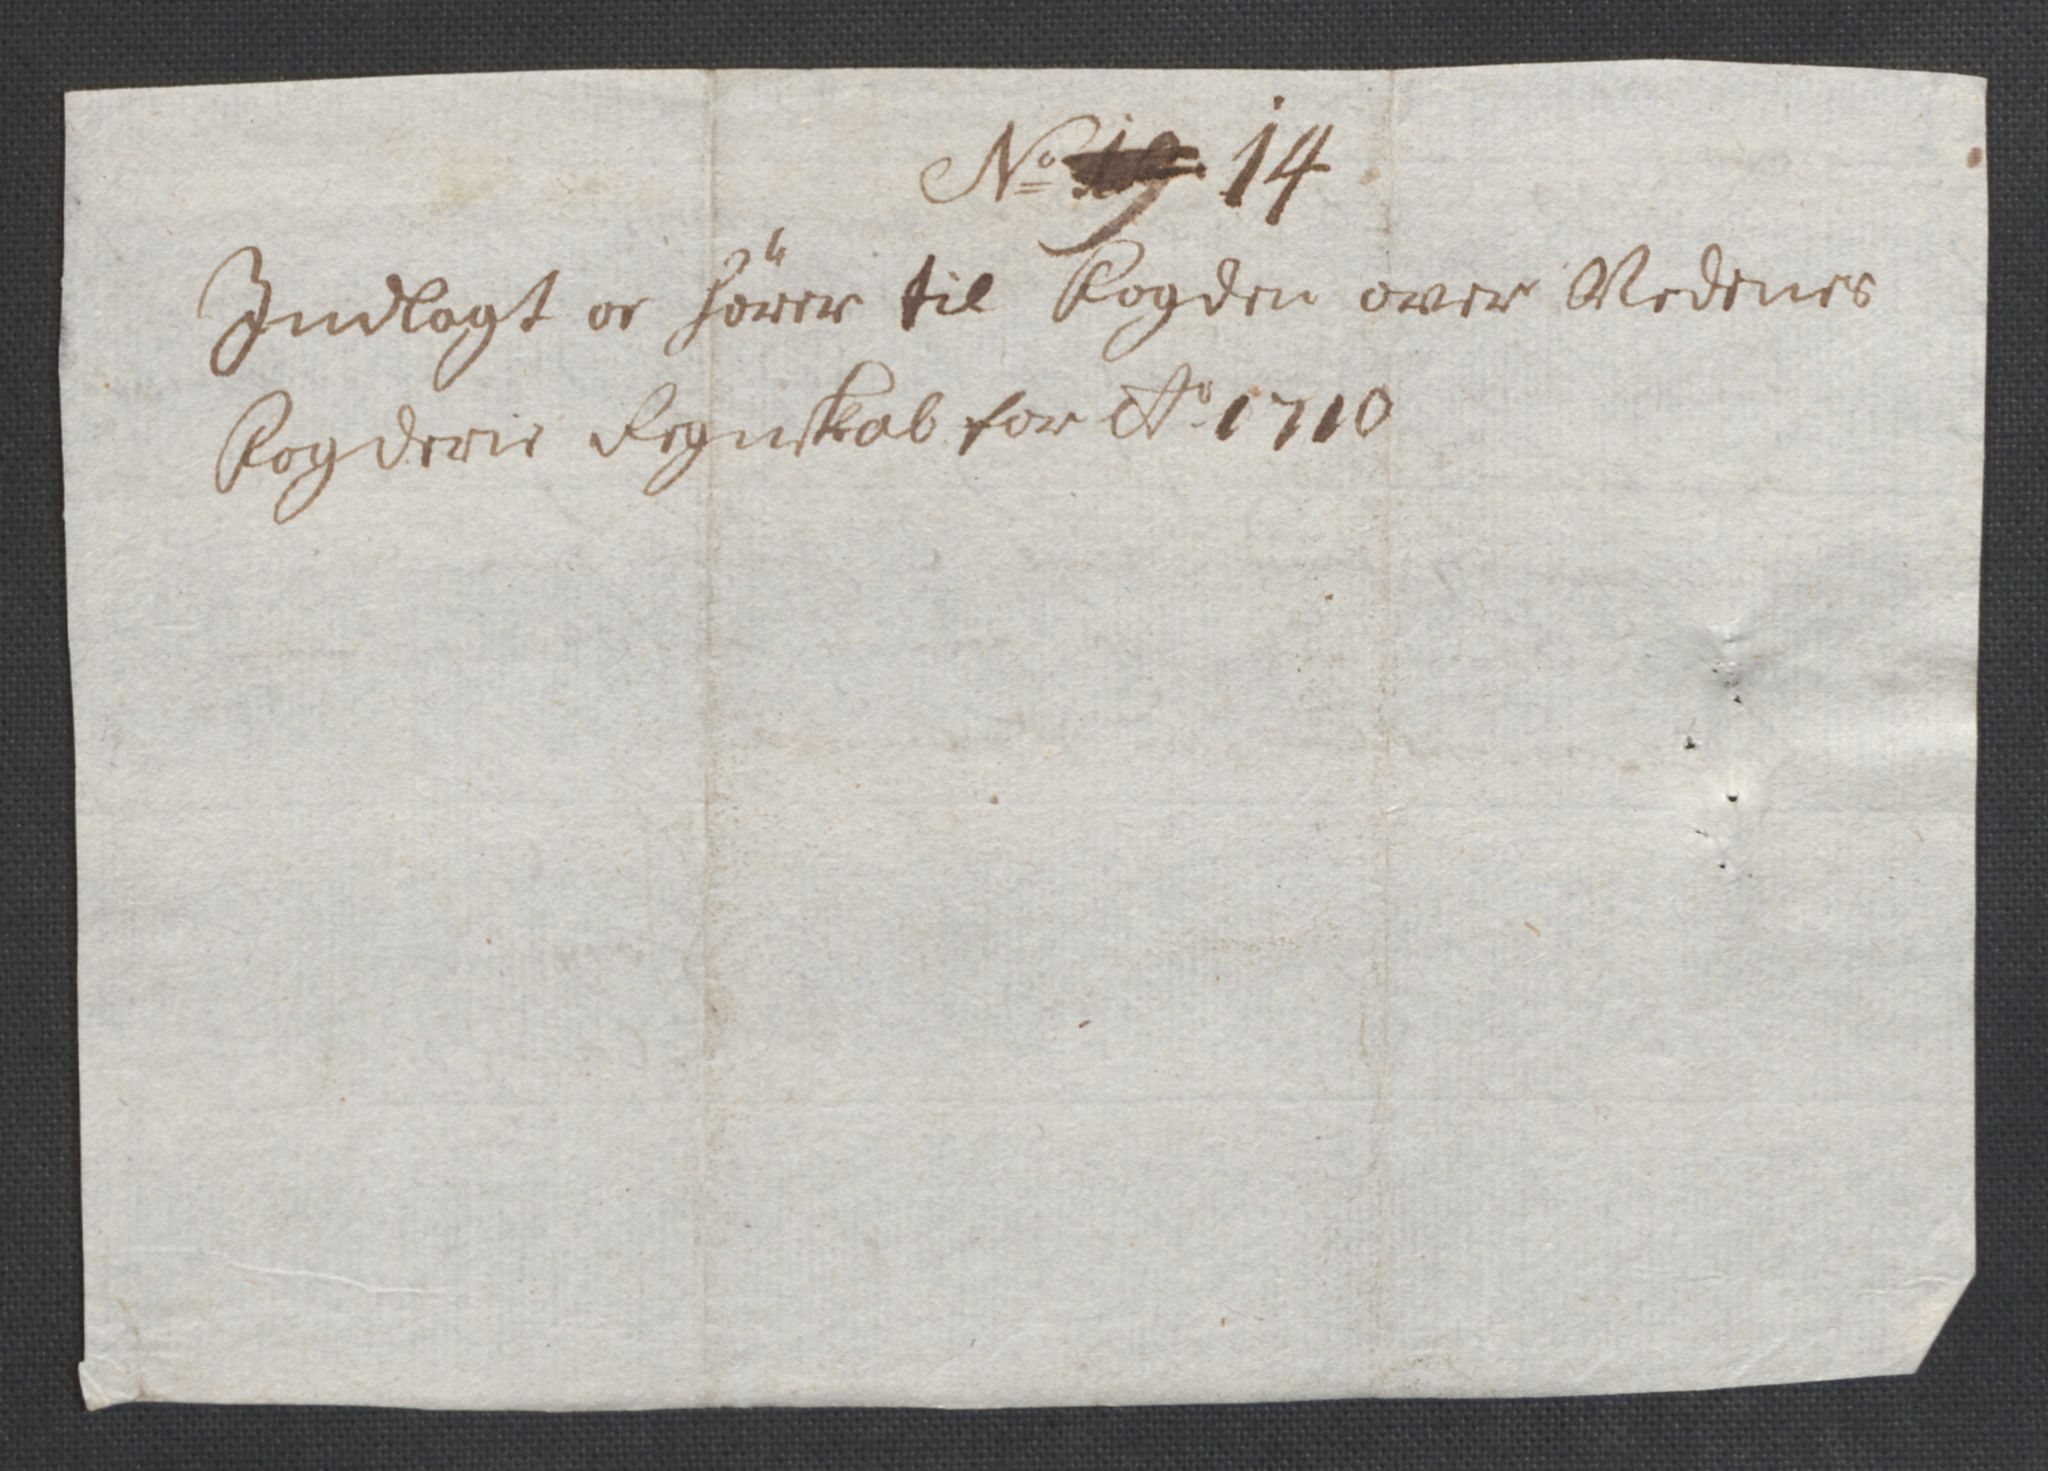 No 14
Indlagt oc hörer til Fogden over Nedenes
Fogderie Regnskab for Ao 1710